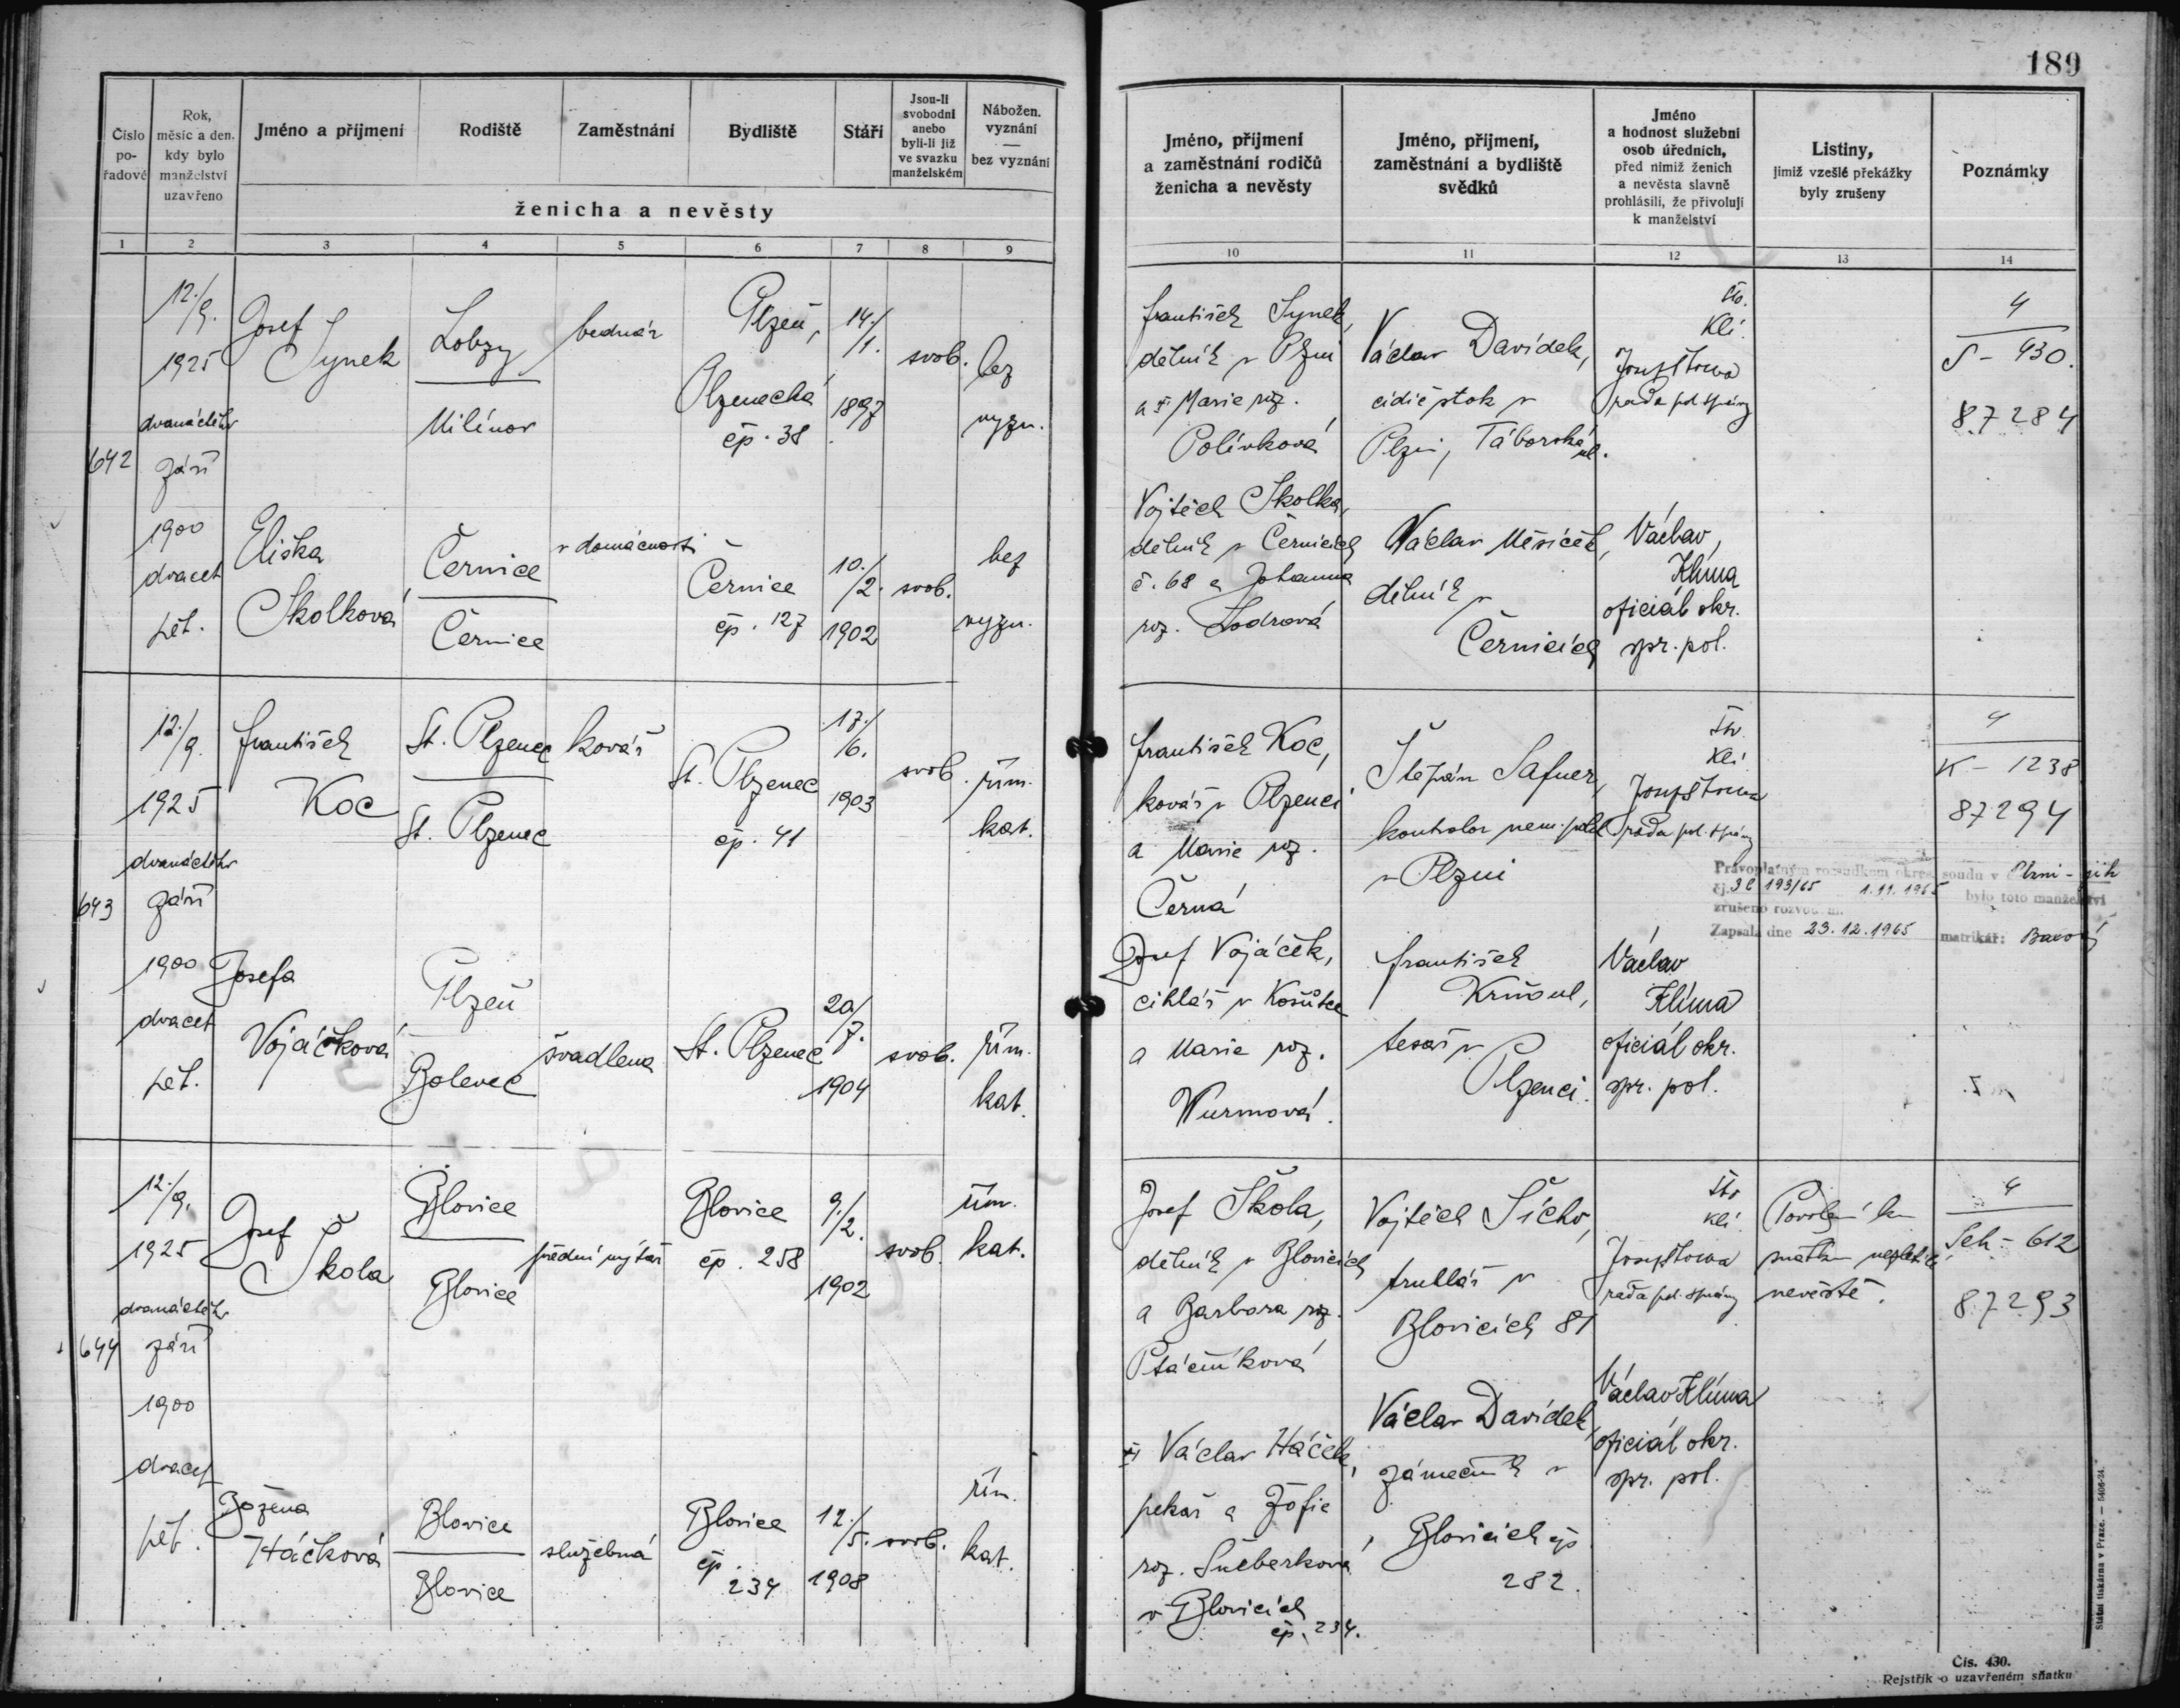 189
Číslo pořadové
Rok, měsíc a den, kdy bylo manželství uzavřeno
Jméno a příjmení
Rodiště
Zaměstnání
Bydliště
Stáří
Jsou-li svobodni anebo byli-li již ve svazku manželském
Nábožen. vyznání — bez vyznání
ženicha a nevěsty
1 2 3 4 5 6 7 8 9
Jméno, příjmení a zaměstnání rodičů ženicha a nevěsty
Jméno, příjmení, zaměstnání a bydliště svědků
Jméno a hodnost služební osob úředních, před nimiž ženich a nevěsta slavně prohlásili, že přivolují k manželství
Listiny, jimiž vzešlé překážky byly zrušeny
Poznámky
10 11 12 13 14
642
12./9.
1925
dvanáctého
září
1900
dvacet
pět.
Josef
Synek
Lobzy
Milínov
bednář
Plzeň,
Plzenecká
čp. 38
14./1.
1897
svob.
bez
vyzn.
Eliška
Skolková
Černice
Černice
v domácnosti
Černice
čp. 127
10./2.
1902
svob.
bez
vyzn.
František Synek,
dělník v Plzni
a Marie roz.
Polívková
Vojtěch Skolka,
dělník v Černicích
č. 68 a Johanna
roz. Lodrová
Václav Davídek,
cidič stok v
Plzni, Táborská ul.
Václav Měsíček,
dělník v
Černicích
Kli
rada pol. správy
Václav
Klíma
oficiál okr.
spr. pol.
4
S - 430.
87284
643
12./9.
1925
dvanáctého
září
1900
dvacet
pět.
František
Koc
St. Plzenec
St. Plzenec
kovář
St. Plzenec
čp. 41
17./6.
1903
svob.
řím.
kat.
Josefa
Vojáčková
Plzeň
Bolevec
švadlena
St. Plzenec
20/7.
1904
svob.
řím.
kat.
František Koc,
kovář v Plzenci
a Marie roz.
Černá
Josef Vojáček,
cihlář v Košutce
a Marie roz.
Wurmová.
Štěpán Safner,
kontrolor nem. pokl.
v Plzni
František
Krňoul,
tesař v
Plzenci.
Kli
rada pol. správy
Václav
Klíma
oficiál okr.
spr. pol.
4
K - 1238
87294
Právoplatným rozsudkem okres. soudu v Plzni - jih
čj. 3C 193/65 1.11.1965 bylo toto manželství
zrušeno rozvodem.
Zapsala dne 23.12.1965 matrikář:
644
12./9.
1925
dvanáctého
září
1900
dvacet
pět.
Josef
Škola
Blovice
Blovice
Blovice
čp. 258
9./2.
1902
svob.
řím.
kat.
Božena
Háčková
Blovice
Blovice
služebná
Blovice
čp.
234
12./5.
1908
svob.
řím.
kat.
Josef Škola,
dělník v Blovicích
a Barbora roz.
Ptáčníková
Václav Háček,
pekař a Žofie
roz.
v Blovicích
čp. 234.
Vojtěch Šícho,
truhlář v
Blovicích 81
Václav Davídek,
zámečník v
Blovicích čp
282.
Kli
rada pol. správy
Václav Klíma
oficiál okr.
spr. pol.
Povolení ke
sňatku nezletilé
nevěstě.
4
Sch - 612
87293
Státní tiskárna v Praze. — 5406-24.
Čís. 430.
Rejstřík o uzavřeném sňatku